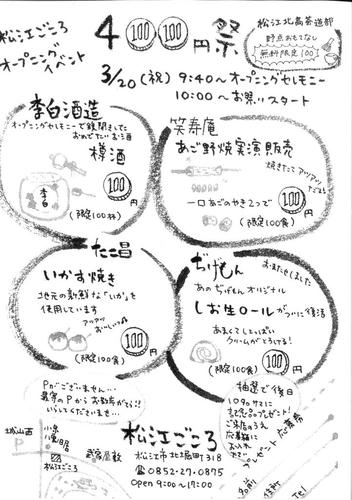 松江ごころ
オープニング
イベント
4 100 100 円 祭
松江北高茶道部
野点おもてなし
無料限定100
3/20(祝) 9:40～オープニングセレモニー
10:00～お祭りスタート
李白酒造
オープニングセレモニーで鏡開きをした
おめでたいお酒
樽酒
李白
100円
(限定100杯)
笑寿庵
あご野焼実演販売
焼きたてアツアツ
だよ
100円
一口あごのやき2つで
(限定100食)
たこ昌
いかす焼き
地元の新鮮な「いか」を
使用しています
アツアツ
おいしい
100円
(限定100食)
ぢげもん
おまたせしました
あのぢげもんオリジナル
しお生ロールがついに復活
あまくてしょっぱい
クリームがとろける!
100円
(限定100食)
Pがございません…
最寄のPからお散歩がてら
いらしてくださいませ…
城山西
P
小泉
八雲旧居
武家屋敷
松江ごころ
松江ごころ
松江市北堀町318
☎0852-27-0875
Open 9:00～17:00
抽選で後日
プレゼント!
ご来店のうえ
応募箱に
お入れ
下さい
プレゼント応募券
お名前
Tel